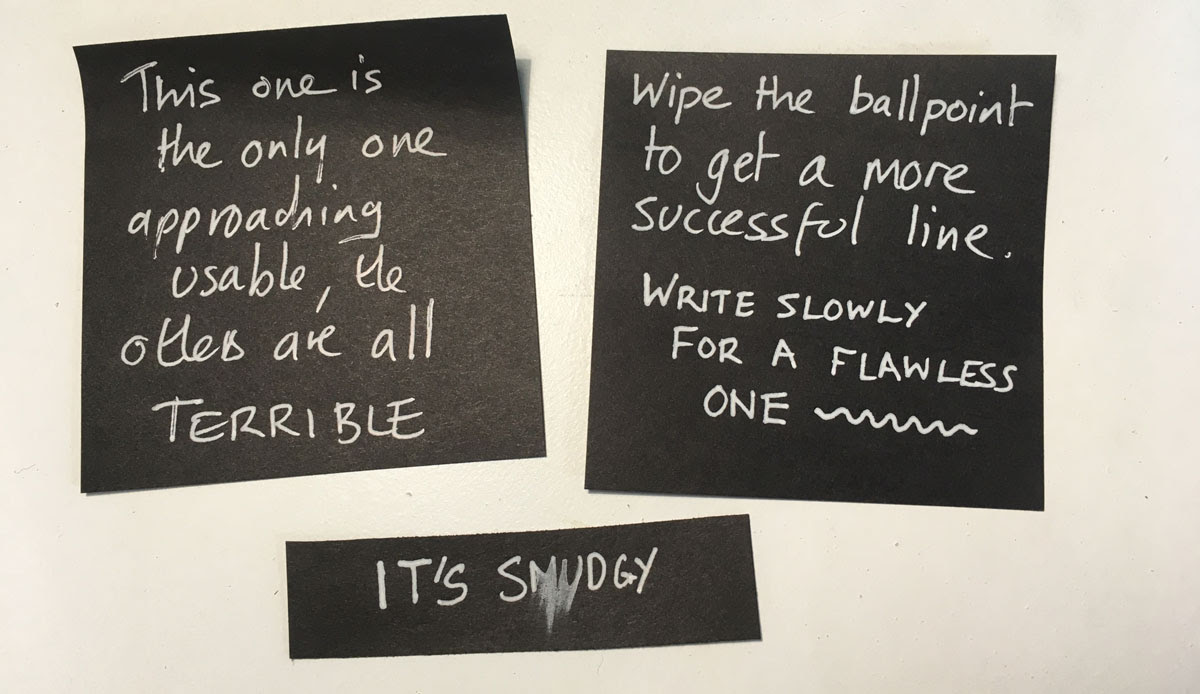 This one is
the only one
approaching
usable, the
others are all
TERRIBLE
Wipe the ballpoint
to get a more
successful line.
WRITE SLOWLY
FOR A FLAWLESS
ONE
IT'S SMUDGY